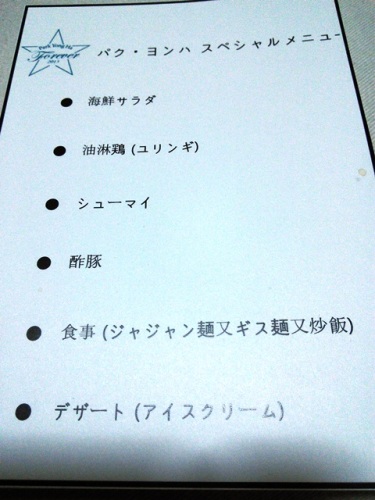 Forever
パク・ヨンハ スペシャルメニュー
● 海鮮サラダ
● 油淋鶏 (ユリンギ)
● シューマイ
● 酢豚
● 食事 (ジャジャン麺又ギス麺又炒飯)
● デザート (アイスクリーム)